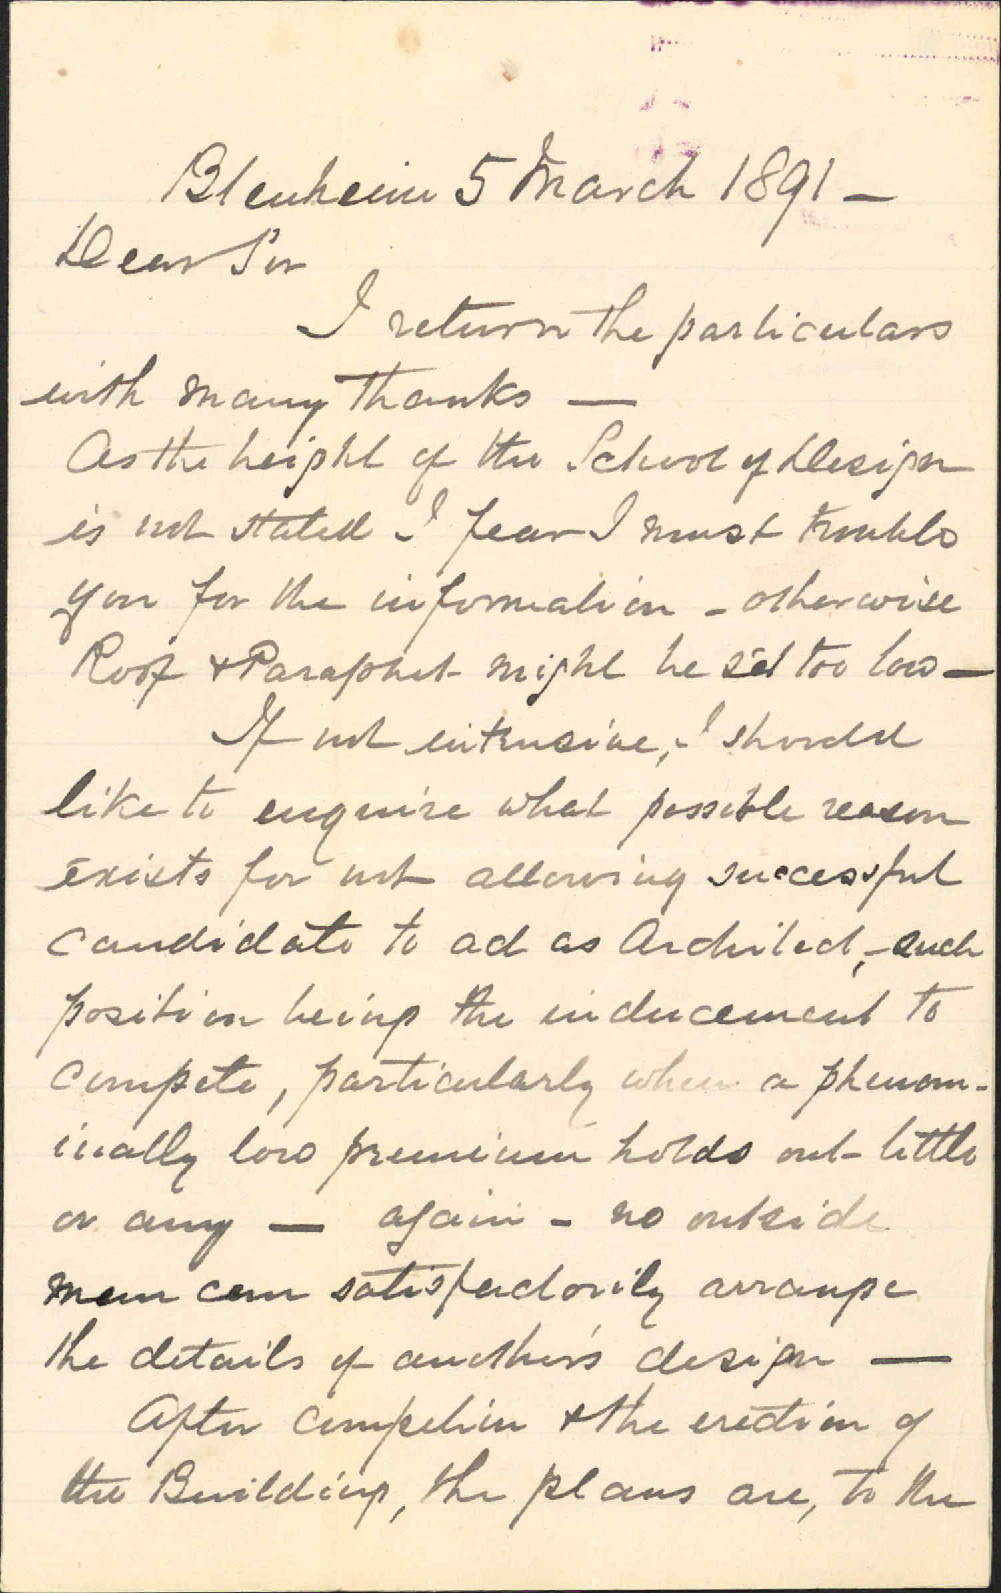 Blenheim 5 March 1891 —
Dear Sir
I return the particulars
with many thanks —
As the height of the School of Design
is not stated I fear I must trouble
you for the information - otherwise
Roof & Paraphet might be set too low —
If not intrusive, I should
like to enquire what possible reason
exists for not allowing successful
candidate to act as Architect, - such
position being the inducement to
compete, particularly when a phenom-
inally low premium holds out little
or any — again - no outside
man can satisfactorily arrange
the details of another's design —
After competion & the erection of
the Building, the plans are, to the